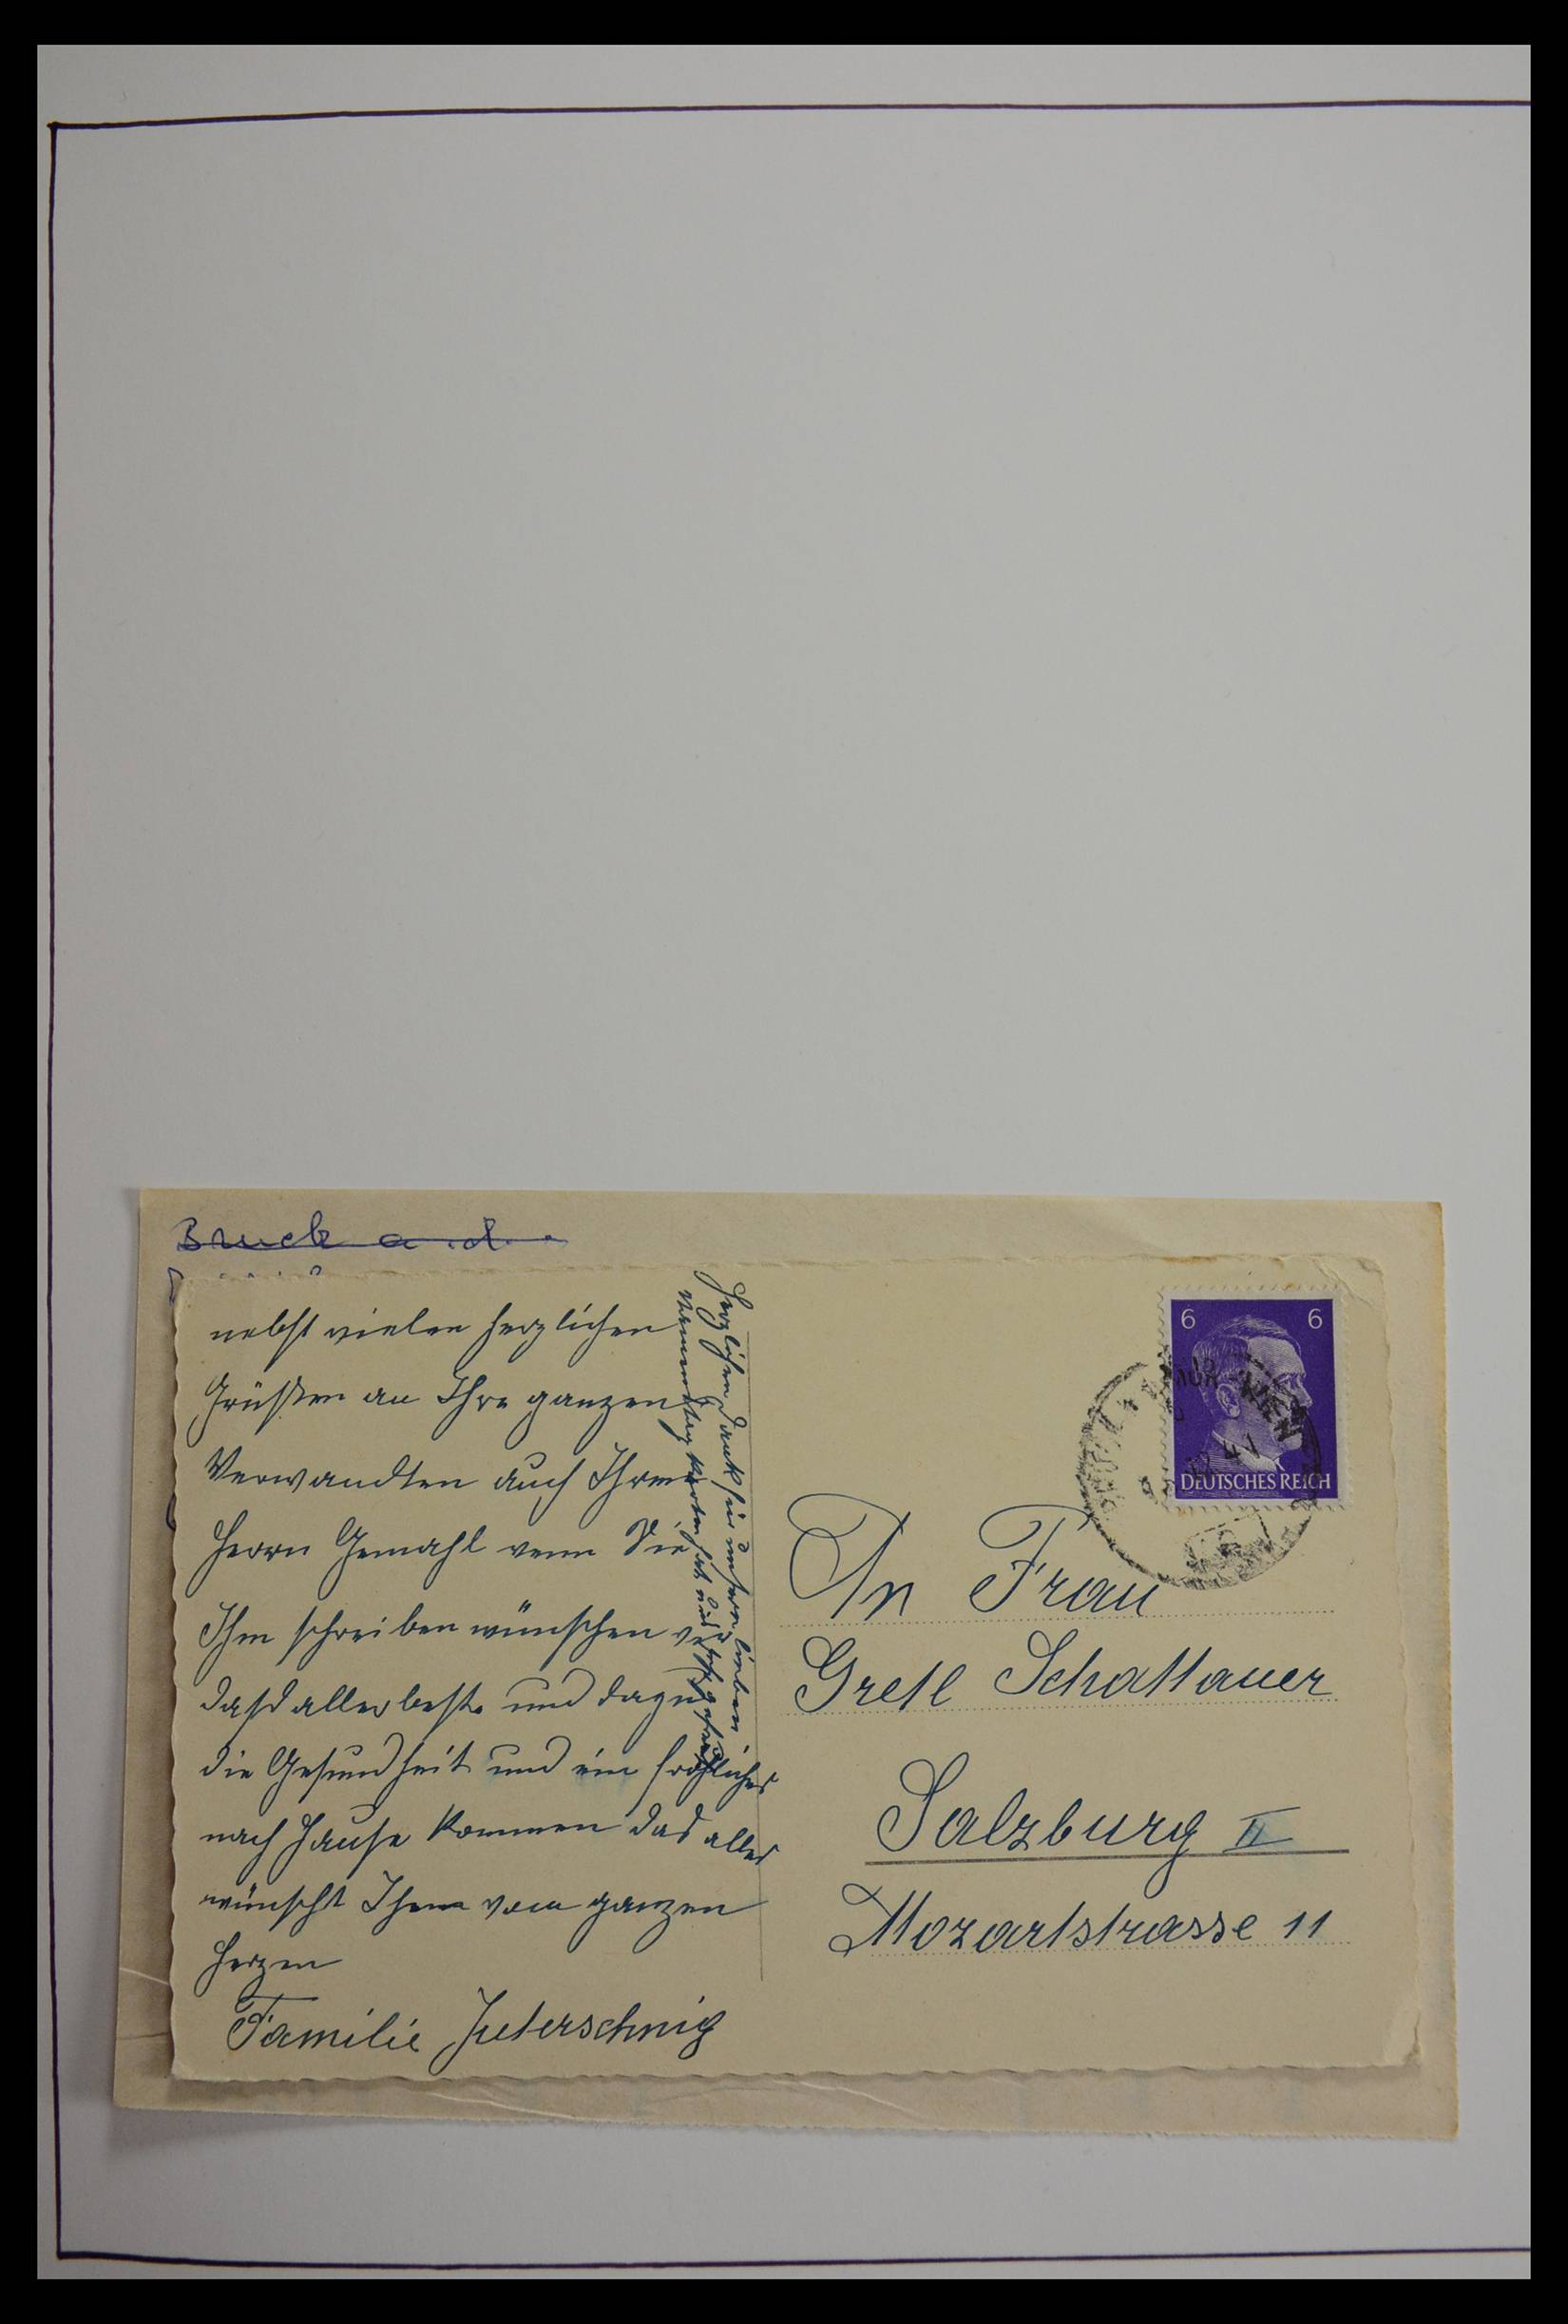 Bruck a. d.
nebst vielen herzlichen
Grüssen an Ihre ganzen
Verwandten auch Ihrem
Herrn Gemahl wenn Sie
Ihm schreiben wünschen wir
dass allerbeste und dazu
die Gesundheit und ein fröhliches
nach Hause kommen das alles
wünscht Ihnen vom ganzen
Herzen
Familie Juterschnig
Herzlichen Dank für unsern lieben
Karten hat uns sehr gefreut
6 6
MUR - WIEN
41
DEUTSCHES REICH
An Frau
Gretl Schattauer
Salzburg II
Mozartstrasse 11